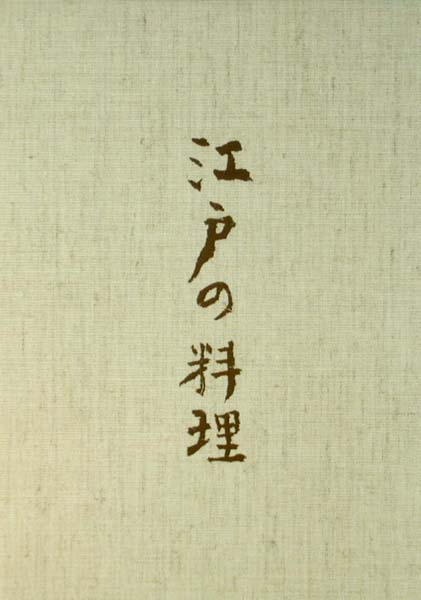 江戸の料理